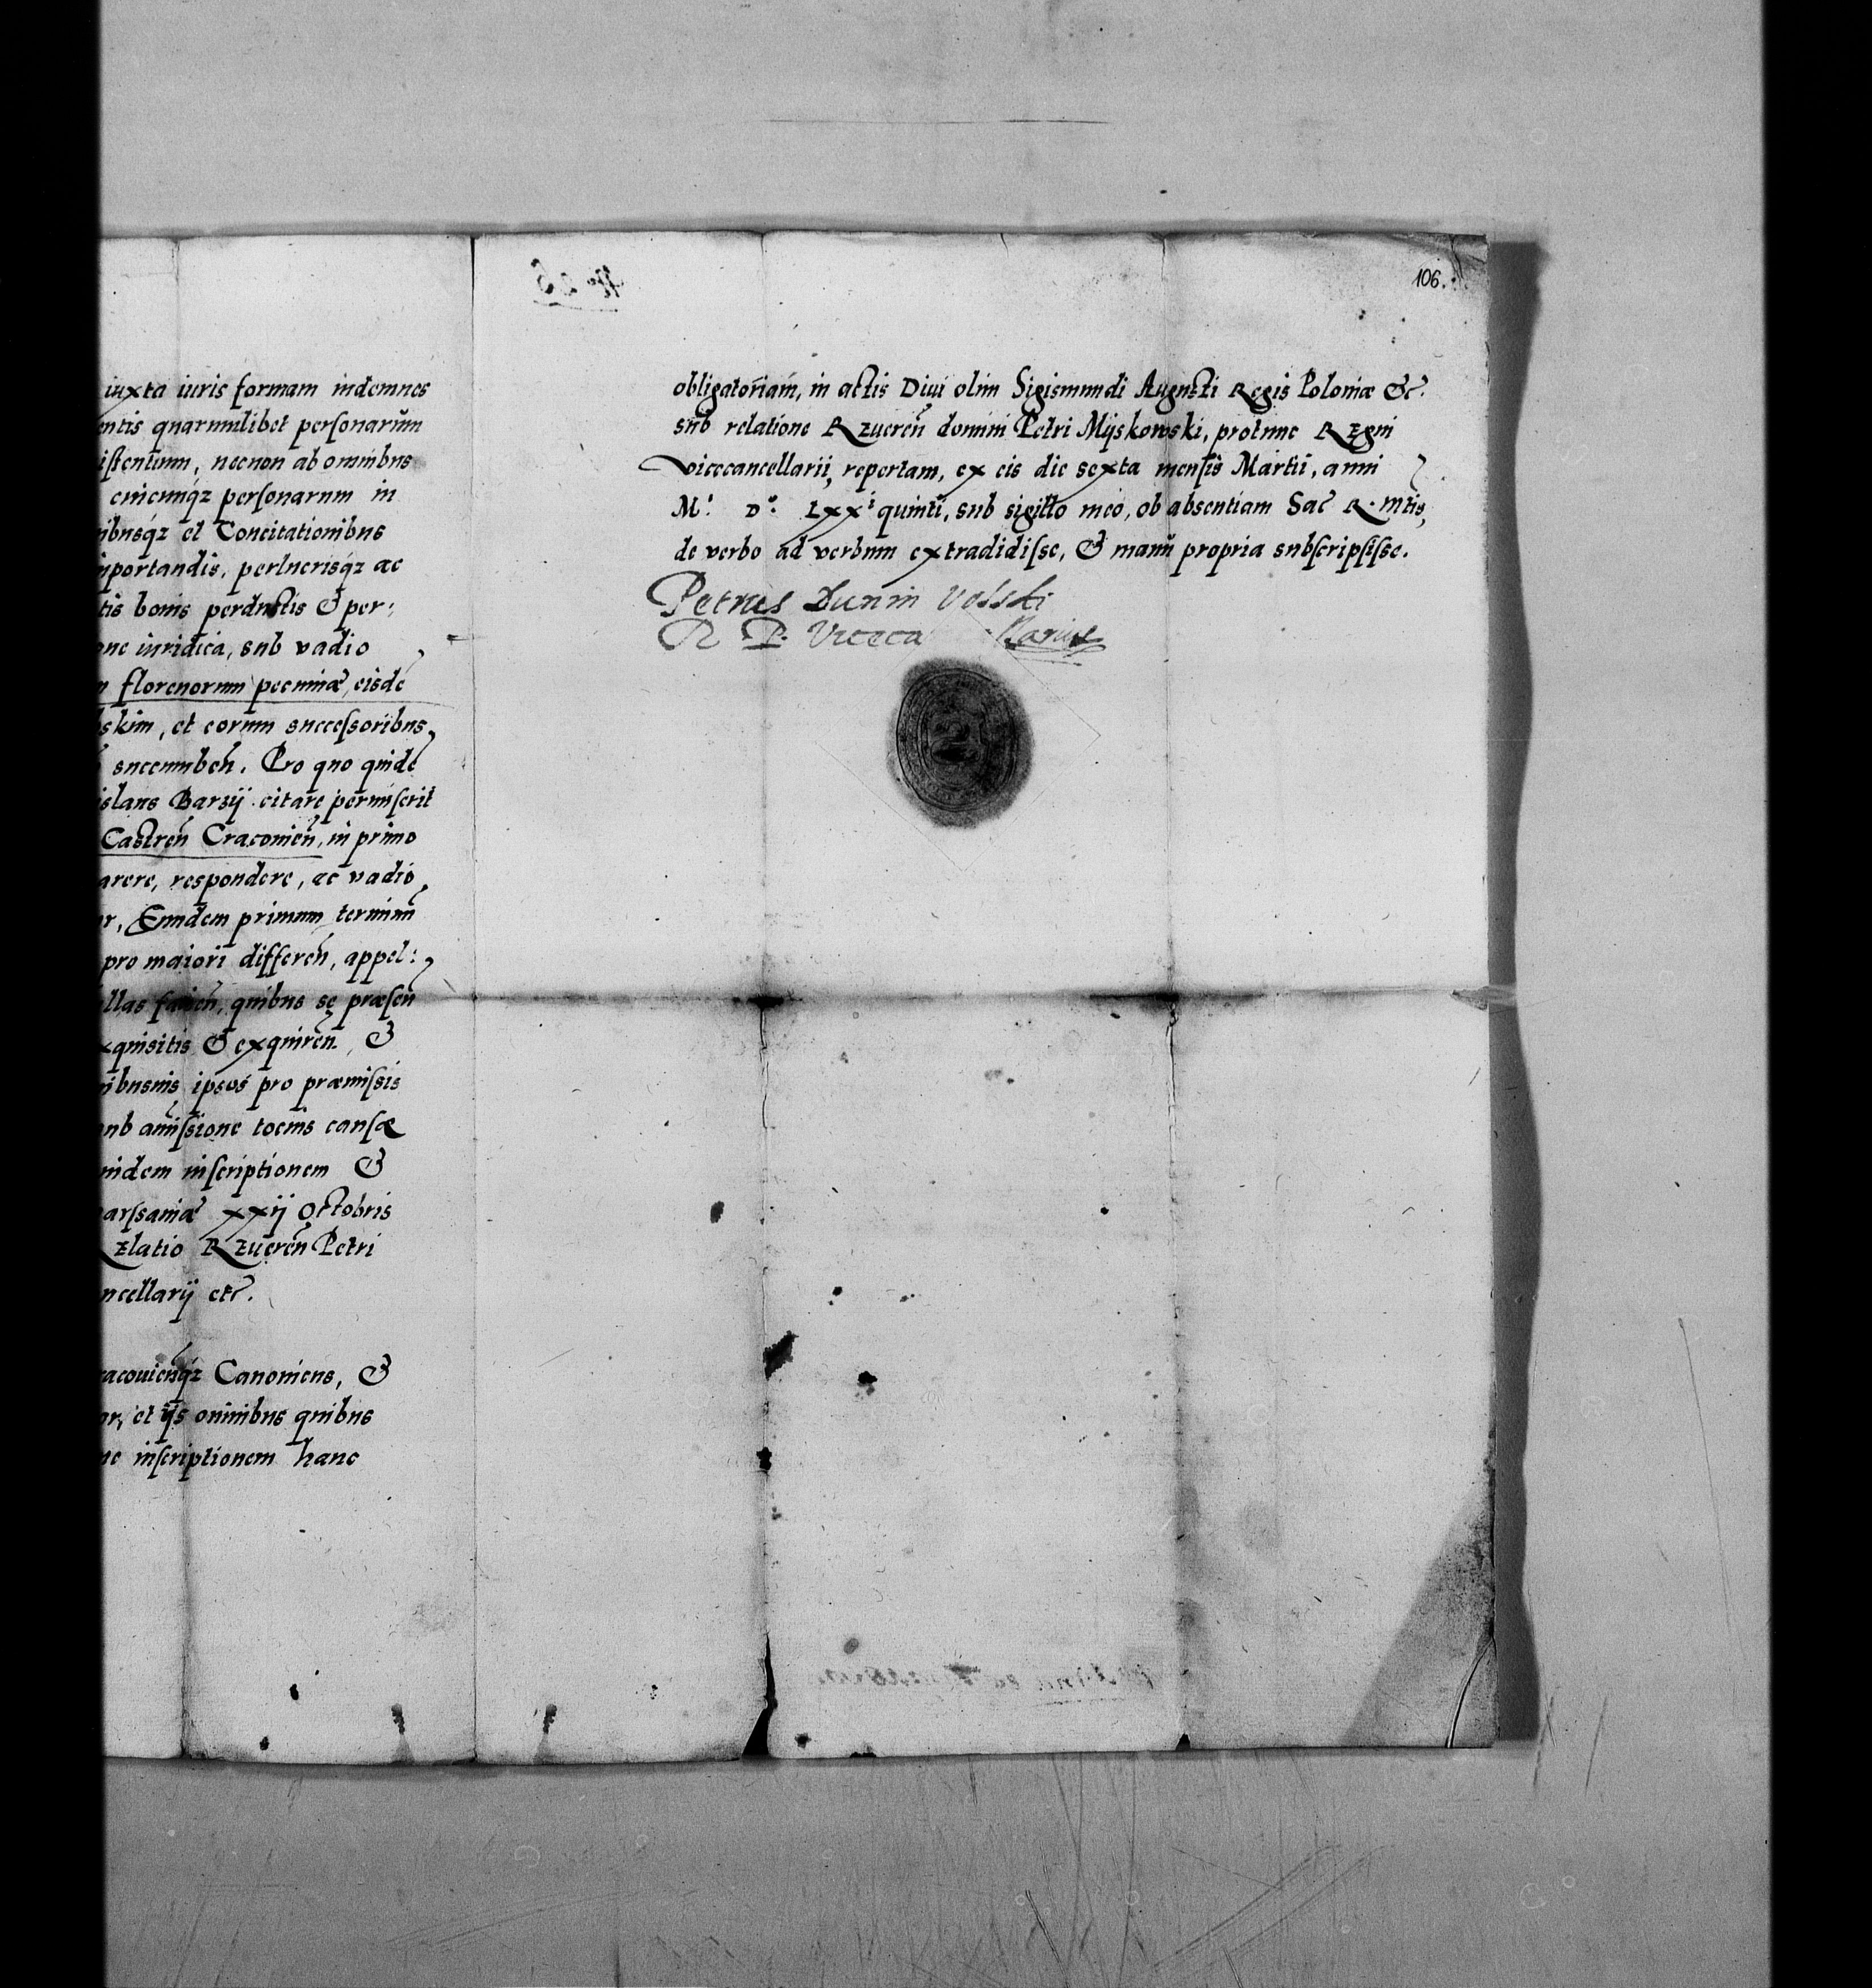 iuxta iuris formam indemnes
entis quarumlibet personarum
istentium, necnon ab omnibus
cuicumqz personarum in
ibusqz et Concitationibus
mportandis, perlucrisqz ac
tis bonis perductis & per:
one iuridica, sub vadio
florenorum pecuniæ, eisde
skim, et eorum successoribus,
succumben̄. Pro quo quide
islaus Barzÿ citare permiserit
Castren̄ Cracouien̄, in primo
arere, respondere, ac vadio
Eundem primum terminū
pro maiori differen̄, appel:
llas facien̄, quibus se præsen̄
xquisitis & exquiren̄, &
ibusuis ipsos pro præmissis
ub amissione tocius causæ
uidem inscriptionem &
arssauiæ xxij Octobris
Relatio Reueren̄ Petri
ncellarÿ etc.
racouien̄qz Canonicus, &
or, et ijs omnibus quibus
inscriptionem hanc
106.
obligatoriam, in actis Diui olim Sigismundi Augusti Regis Poloniæ &c.
sub relatione Reueren̄ domini Petri Mÿskowski, protunc Regni
vicecancellarii, repertam, ex eis die sexta mensis Martii, anni
M.º D.º LXXi quinti, sub sigillo meo, ob absentiam Sac R. Mtis,
de verbo ad verbum extradidisse, & manū propria subscripsisse.
Petrus Dunin Volski
R P. Viceca llarius